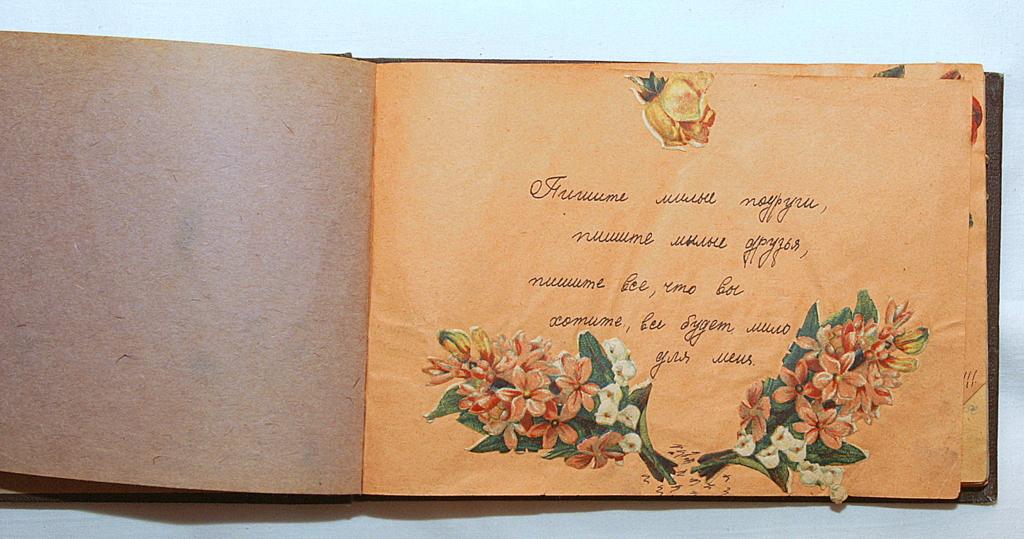 Пишите милые подруги,
пишите милые друзья,
пишите все, что вы
хотите, все будет мило
для меня.